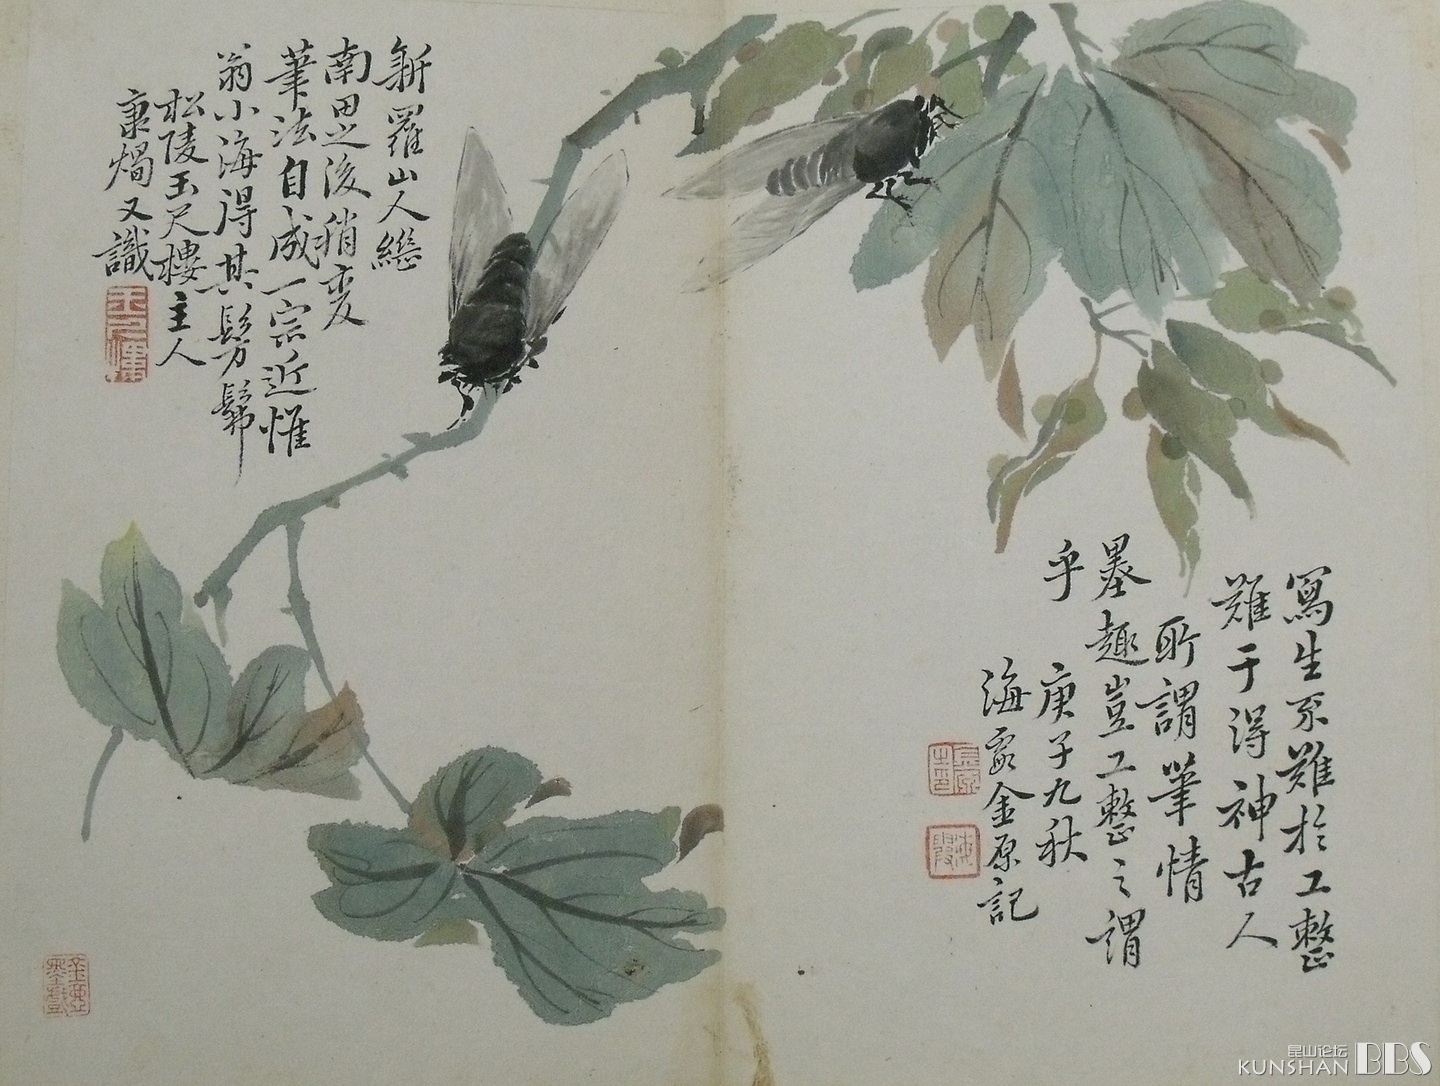 寫生不難於工整
難于得神古人
所謂筆情
墨趣豈工整之謂
乎
庚子九秋
海霞金原記
金原之印
海霞
新羅山人繼
南田之後稍变
筆法自成一宗近惟
翁小海得其髣髴
松陵玉尺樓主人
秉燭又識
昆山论坛
KUNSHAN BBS